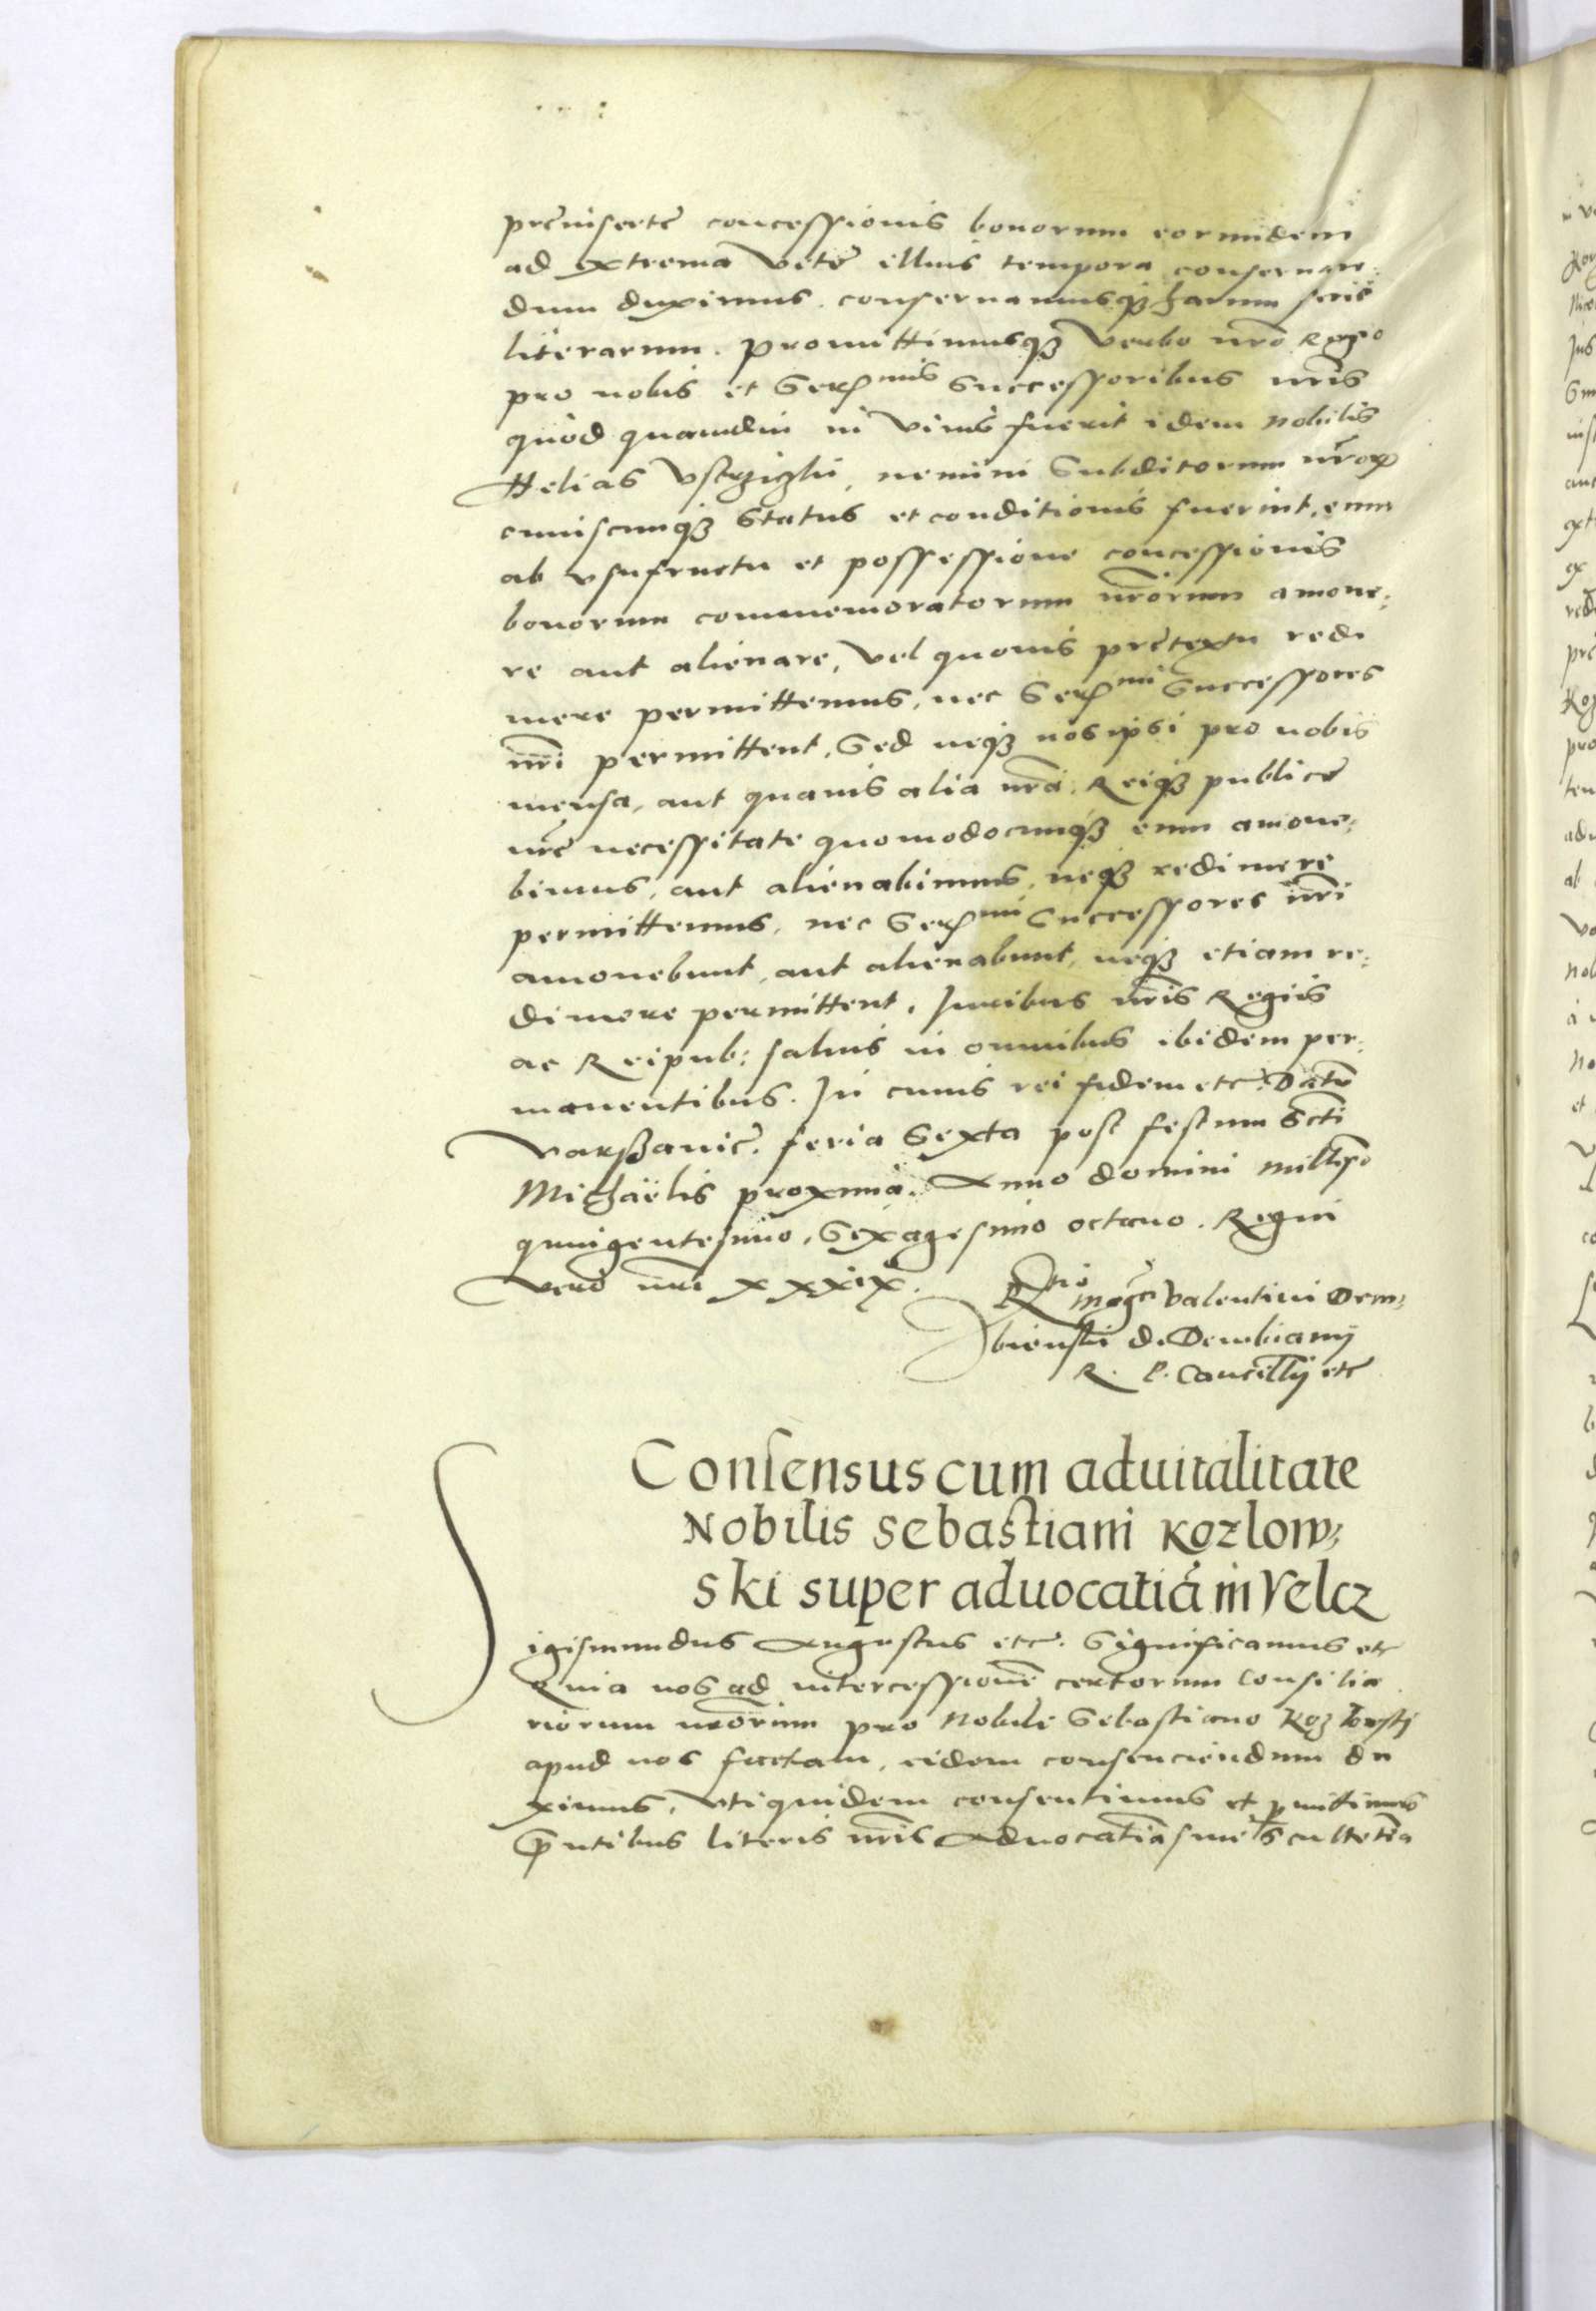 preinserte concessionis bonorum eorundem
ad extrema vite illius tempora conseruan:
dum duximus. conseruamusqȝ harum serie
literarum. promittimusqȝ Verbo nr̃o Regio
pro nobis et Ser^mis Successoribus nr̃is
quod quamdiu in viuis fuerit idem nobilis
Helias Vstrziczki, nemini Subditorum nr̃oꝝ
cuiuscunqȝ Status et conditionis fuerint, eum
ab vsufructu et possessione concessionis
bonorum commemoratorum nr̃orum amoue:
re aut alienare, vel quouis pretextu redi
mere permittemus, nec Ser^mi Successores
nr̃i permittent, Sed neqȝ nos ipsi pro nobis
mensa, aut quauis alia nr̃a, Reiqȝ publice
nr̃e necessitate quomodocunqȝ eum amoue:
bimus, aut alienabimus, neqȝ redimere
permittemus, nec Ser^mi Successores nr̃i
amouebunt, aut alienabunt, neqȝ etiam re:
dimere permittent, Juribus nr̃is Regiis
ac Reipub: saluis in omnibus ibidem per:
manentibus. In cuius rei fidem etc. Date
Varschauie. feria Sexta post festum Scti
Michaëlis proxima. Anno domini Millesio
quingentesimo, Sexagesimo octauo. Regni
vero nr̃i xxxix.
R^tio mag^ci Valentini Dem:
bienski d. Dembiany
R. P. Cancellij etc
Consensus cum aduitalitate
Nobilis Sebastiani Kozlow:
ski super aduocatiā in Velcz
Sigismundus Augustus etc. Significamus etc
Quia nos ad intercessionē certorum Consilia
riorum nr̃orum pro Nobile Sebastiano Kozlowski
apud nos factam, eidem consenciendum du
ximus, vti quidem consentimus et ꝑmittimus
p̃ntibus literis nr̃is Aduocatiā siue Scultetiā